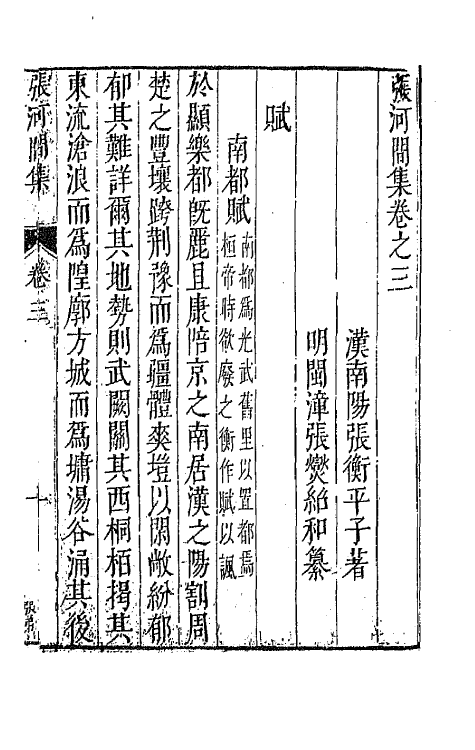 張河間集卷之三
漢南陽張衡平子著
明閩漳張燮紹和纂
賦
南都賦南都爲光武舊里以置都焉
桓帝時欲廢之衡作賦以諷
於顯樂都旣麗且康陪京之南居漢之陽割周
楚之豐壤跨荆豫而爲疆體爽塏以閑敞紛郁
郁其難詳爾其地勢則武闕關其西桐栢揭其
東流滄浪而爲隍廓方城而爲墉湯谷涌其後
張河間集
卷三
十